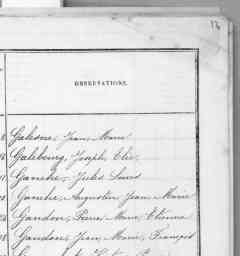 OBSERVATIONS.
Galesne, Jean Marie
Galebourg, Joseph Élie
Ganche, Jules Louis
Ganche, Augustin Jean Marie
Gandon, Pierre Marie Etienne
Gandon, Jean Marie François